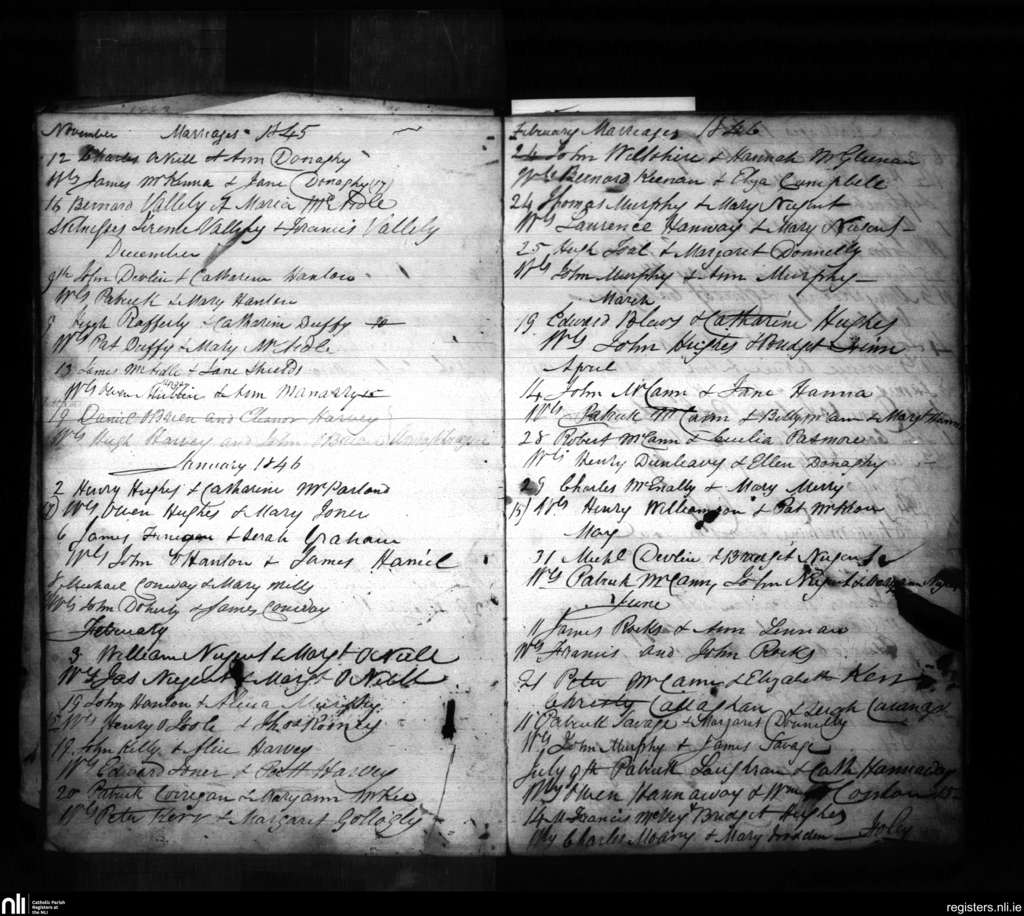 November Marriages 1845
12 Charles O'Neill & Ann Donaghy
Ws James McKenna & Jane Donaghy (17)
16 Bernard Vallely & Maria McArdle
Witnesses Vallely & Francis Vallely
December
9th John Devlin & Catharine Hanlon
Ws Patrick & Mary Hanlon
9 Hugh Rafferty & Catharine Duffy
Ws Pat Duffy & Mary McArdle
13 James McArdle & Jane Shields
Ws Owen & Ann
19 Daniel O'Brien and Eleanor Harvey
Ws Hugh Harvey and John O'Brien
January 1846
2 Henry Hughes & Catharine McParland
Ws Owen Hughes & Mary Toner
6 James Finegan & Serah Graham
Ws John O'Hanlon & James Hamil
8 Michael Conway & Mary Mills
Ws John Doherty & James Conway
February
3 William Nugent & Margt O'Neill
Ws Jas Nugent & Margt O'Neill
15 John Hanlon & Alicia Murphy
Ws Henry O'Toole & Thos Rooney
19 John Kelly & Alice Harvey
Ws Edward Toner & Harvey
20 Patrick Corrigan & Maryann McKee
Ws Peter Kerr & Margaret Gollogly
February Marriages 1846
24 John Wiltshire & Hannah McGleenan
Ws Bernard Keenan & Eliza Campbell
24 Thomas Murphy & Mary Nugent
Ws Laurence Hanway & Mary Nugent
25 Hugh Toal & Margaret Donnelly
Ws John Murphy & Ann Murphy
March
19 Edward & Catharine Hughes
Ws John Hughes & Bridget
April
14 John McCann & Jane Hanna
Ws Patrick McCann & McCann & Mary
28 Robert McCann & Cecilia Pasmore
Ws Henry Dunleavy & Ellen Donaghy
29 Charles McEnally & Mary Merry
(15) Ws Henry Williamson & Pat
May
31 Michl Devlin & Bridget Nugent
Ws Patrick McCann, John Nugent &
June
11 James Rocks & Ann Lennan
Ws Francis and John Rocks
21 Peter McCann & Elizabeth Kerr
Christy Callaghan & Cavanagh
11 Patrick Savage & Margaret Donnelly
Ws John Murphy & James Savage
July 9th Patrick Loughran & Cath Hannaway
Ws Owen Hannaway & Wm
14 Francis McVey Bridget Hughes
Ws Charles & Mary
nli
Catholic Parish
Registers at
the NLI
registers.nli.ie